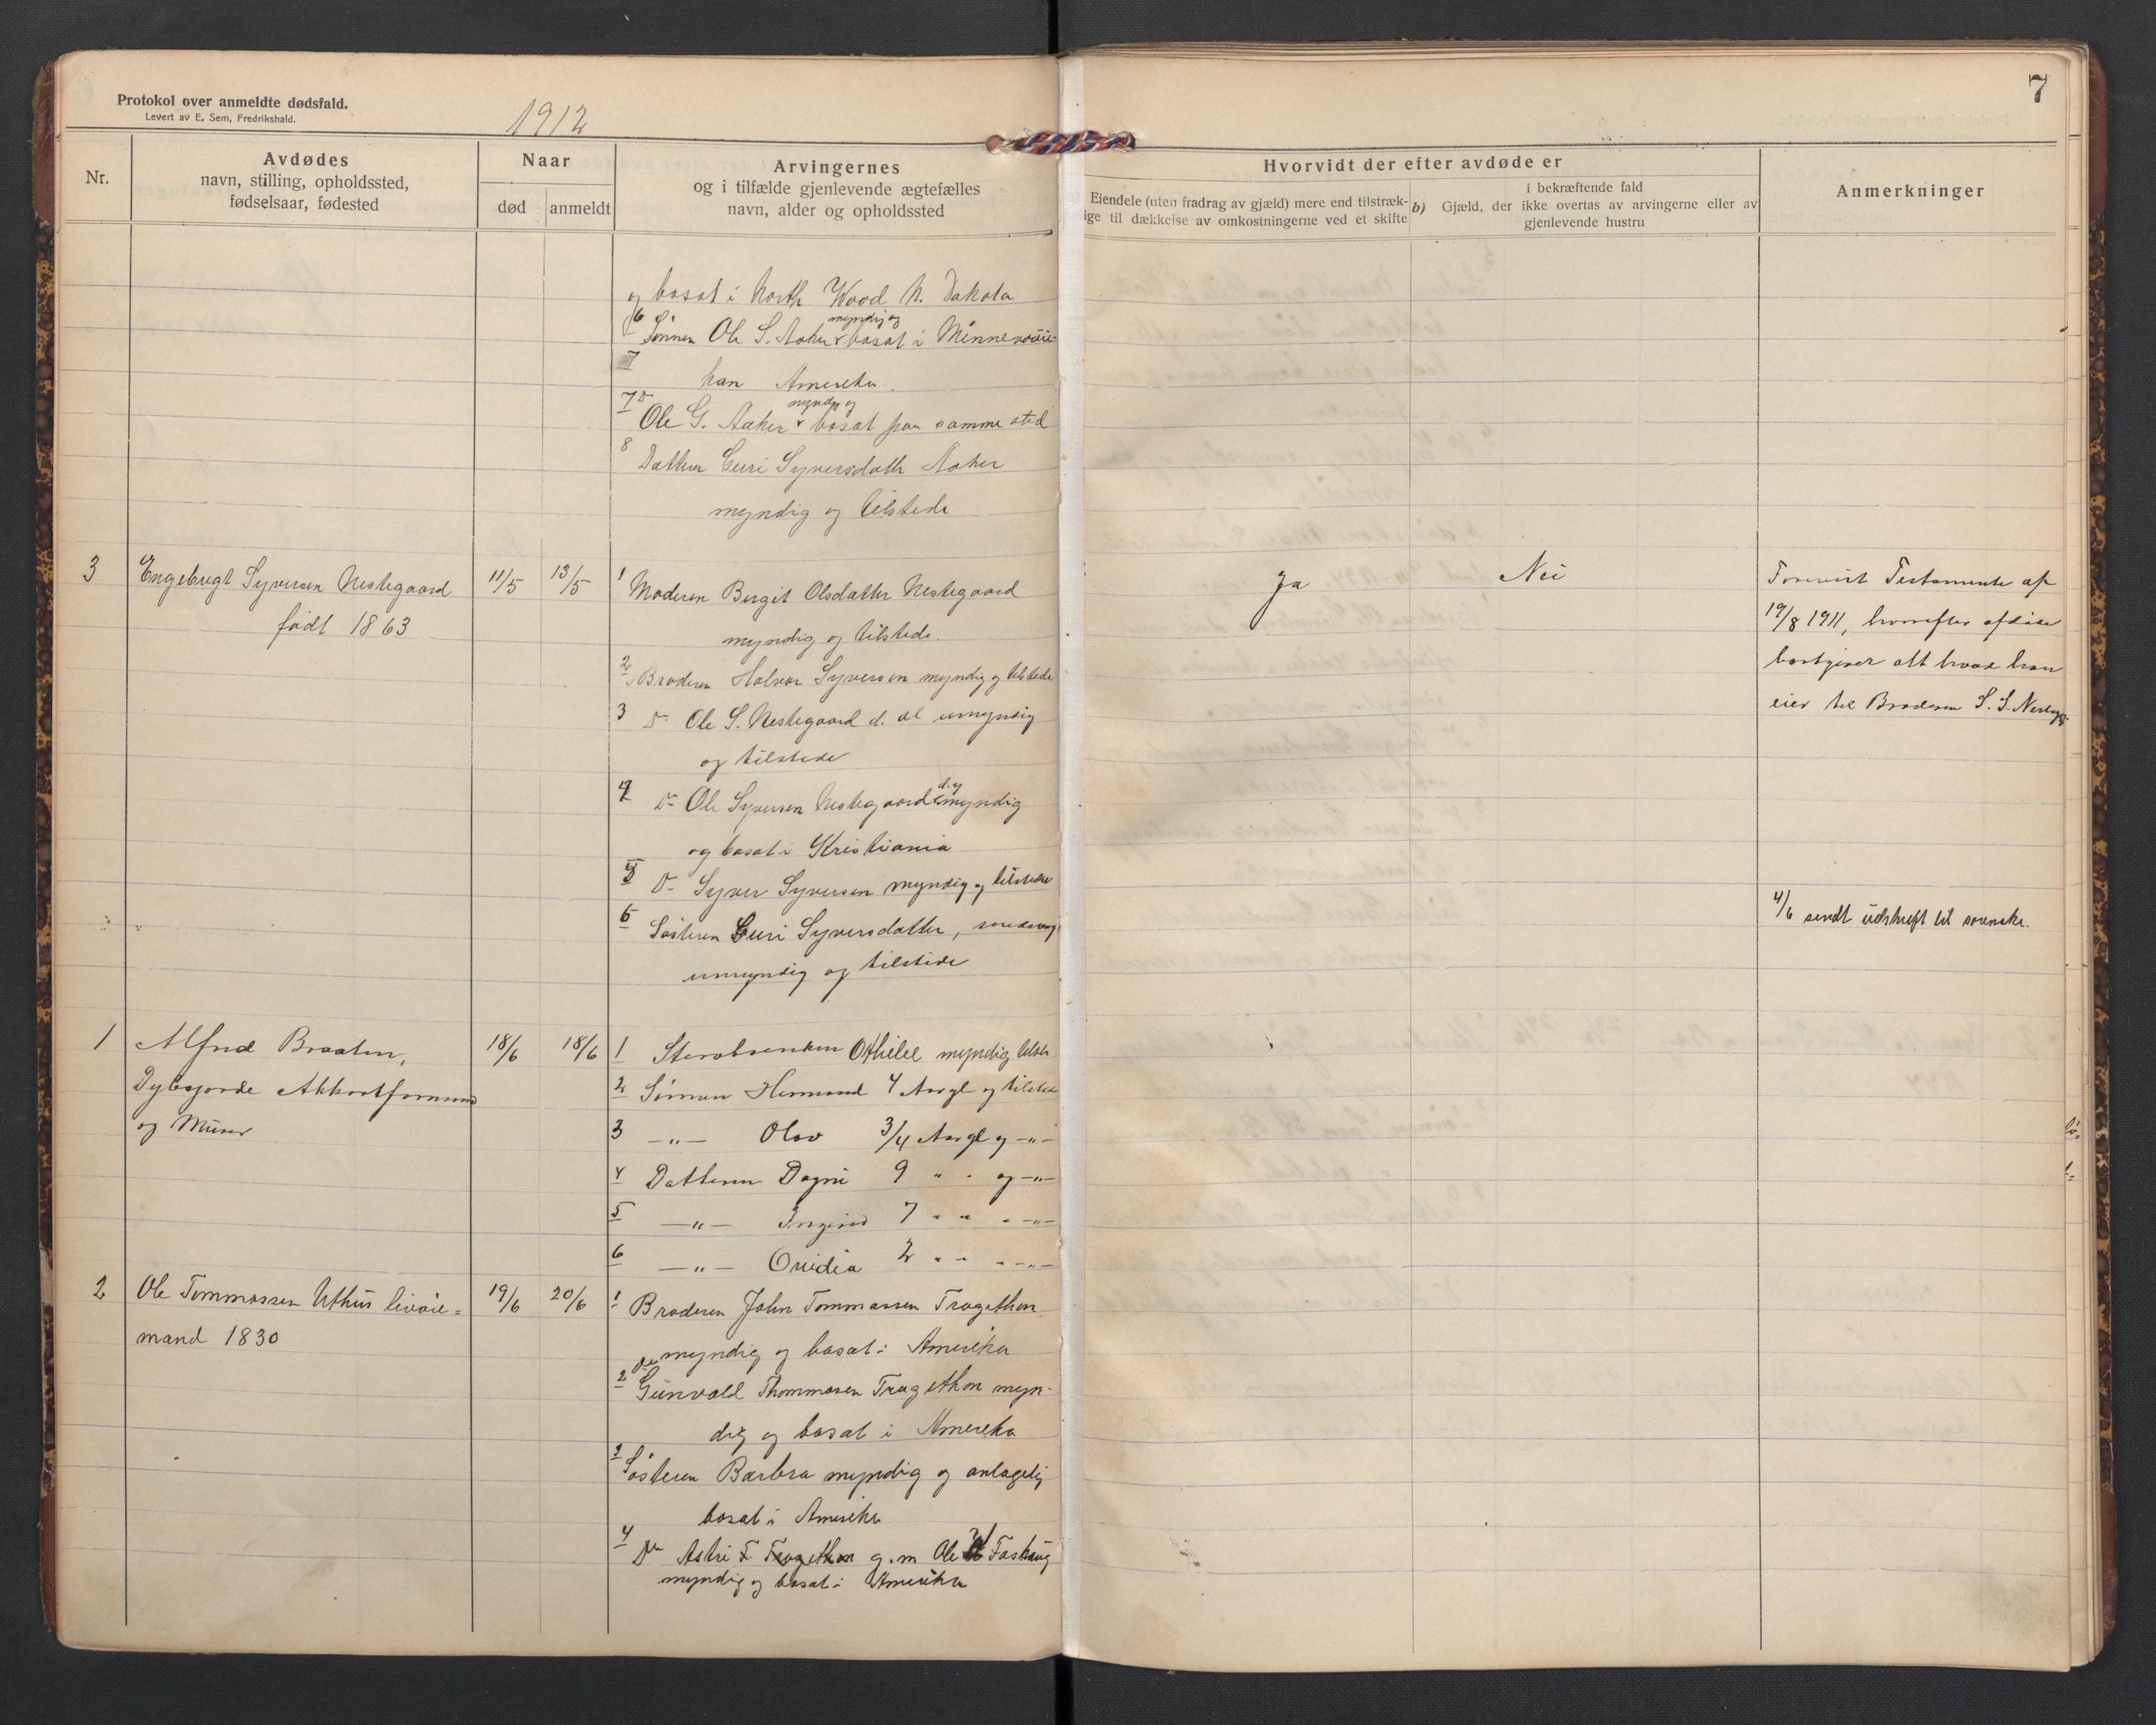 Protokol over anmeldte dødsfald.
Levert av E. Sem, Fredrikshald.
1912
7
Nr.
Avdødes
navn, stilling, opholdssted,
fødselsaar, fødested
Naar
død
anmeldt
Arvingernes
og i tilfælde gjenlevende ægtefælles
navn, alder og opholdssted
Hvorvidt der efter avdøde er
Eiendele (uten fradrag av gjæld) mere end tilstræk-
ge til dækkelse av omkostningerne ved et skifte
b) i bekræftende fald
Gjæld, der ikke overtas av arvingerne eller av
gjenlevende hustru
Anmerkninger
og bosat i North Wood N. Dakota
6 Sønnen Ole S. Aaker myndig og bosat i
Amerika.
7 Do Ole G. Aaker myndig og bosat paa samme sted
8 Datter Guri Syversdatter Aaker
myndig og tilstede
3 Engebrigt Syversen Nestegaard
født 1863
11/5
13/5
1 Moderen Birgit Olsdatter Nestegaard
myndig og tilstede.
2 Broderen Halvor Syversen myndig og tilstede
3 Do Ole S. Nestegaard d. æl umyndig
og tilstede
4 Do Ole Syversen Nestegaard d.y myndig
og bosat i Kristiania
5 Do Syver Syversen myndig og tilstede
6 Søsteren Guri Syversdatter, sindssvag
umyndig og tilstede
Ja
Nei
Forevist Testamente af
19/8 1911, hvorefter afdøde
bortgiver alt hvad han
eier til Broderen S. S. Nestegd
4/6 sendt udskrift til sorenskr.
1 Alfred Braaten,
Akkortformand
og Murer
18/6
18/6
1 Othilie myndig tilste
2 Sønnen Hermund 4 Aar gl og tilstede
3 —"— Olav 3/4 Aar gl og —"—
4 Datteren Dagni 9 " " og —"—
5 —"— Ingerid 7 " " " —"—
6 —"— Ovidia 2 " " " —"—
2 Ole Tommassen Uthus livøie=
mand 1830
19/6
20/6
1 Broderen John Tommassen Tragethon
myndig og bosat i Amerika
2 Do Gunvald Thommasen Tragethon myn-
dig og bosat i Amerika
3 Søsteren Barbra myndig og antagelig
bosat i Amerika
4 Do Astri T. Tragethon g. m Ole
myndig og bosat i Amerika